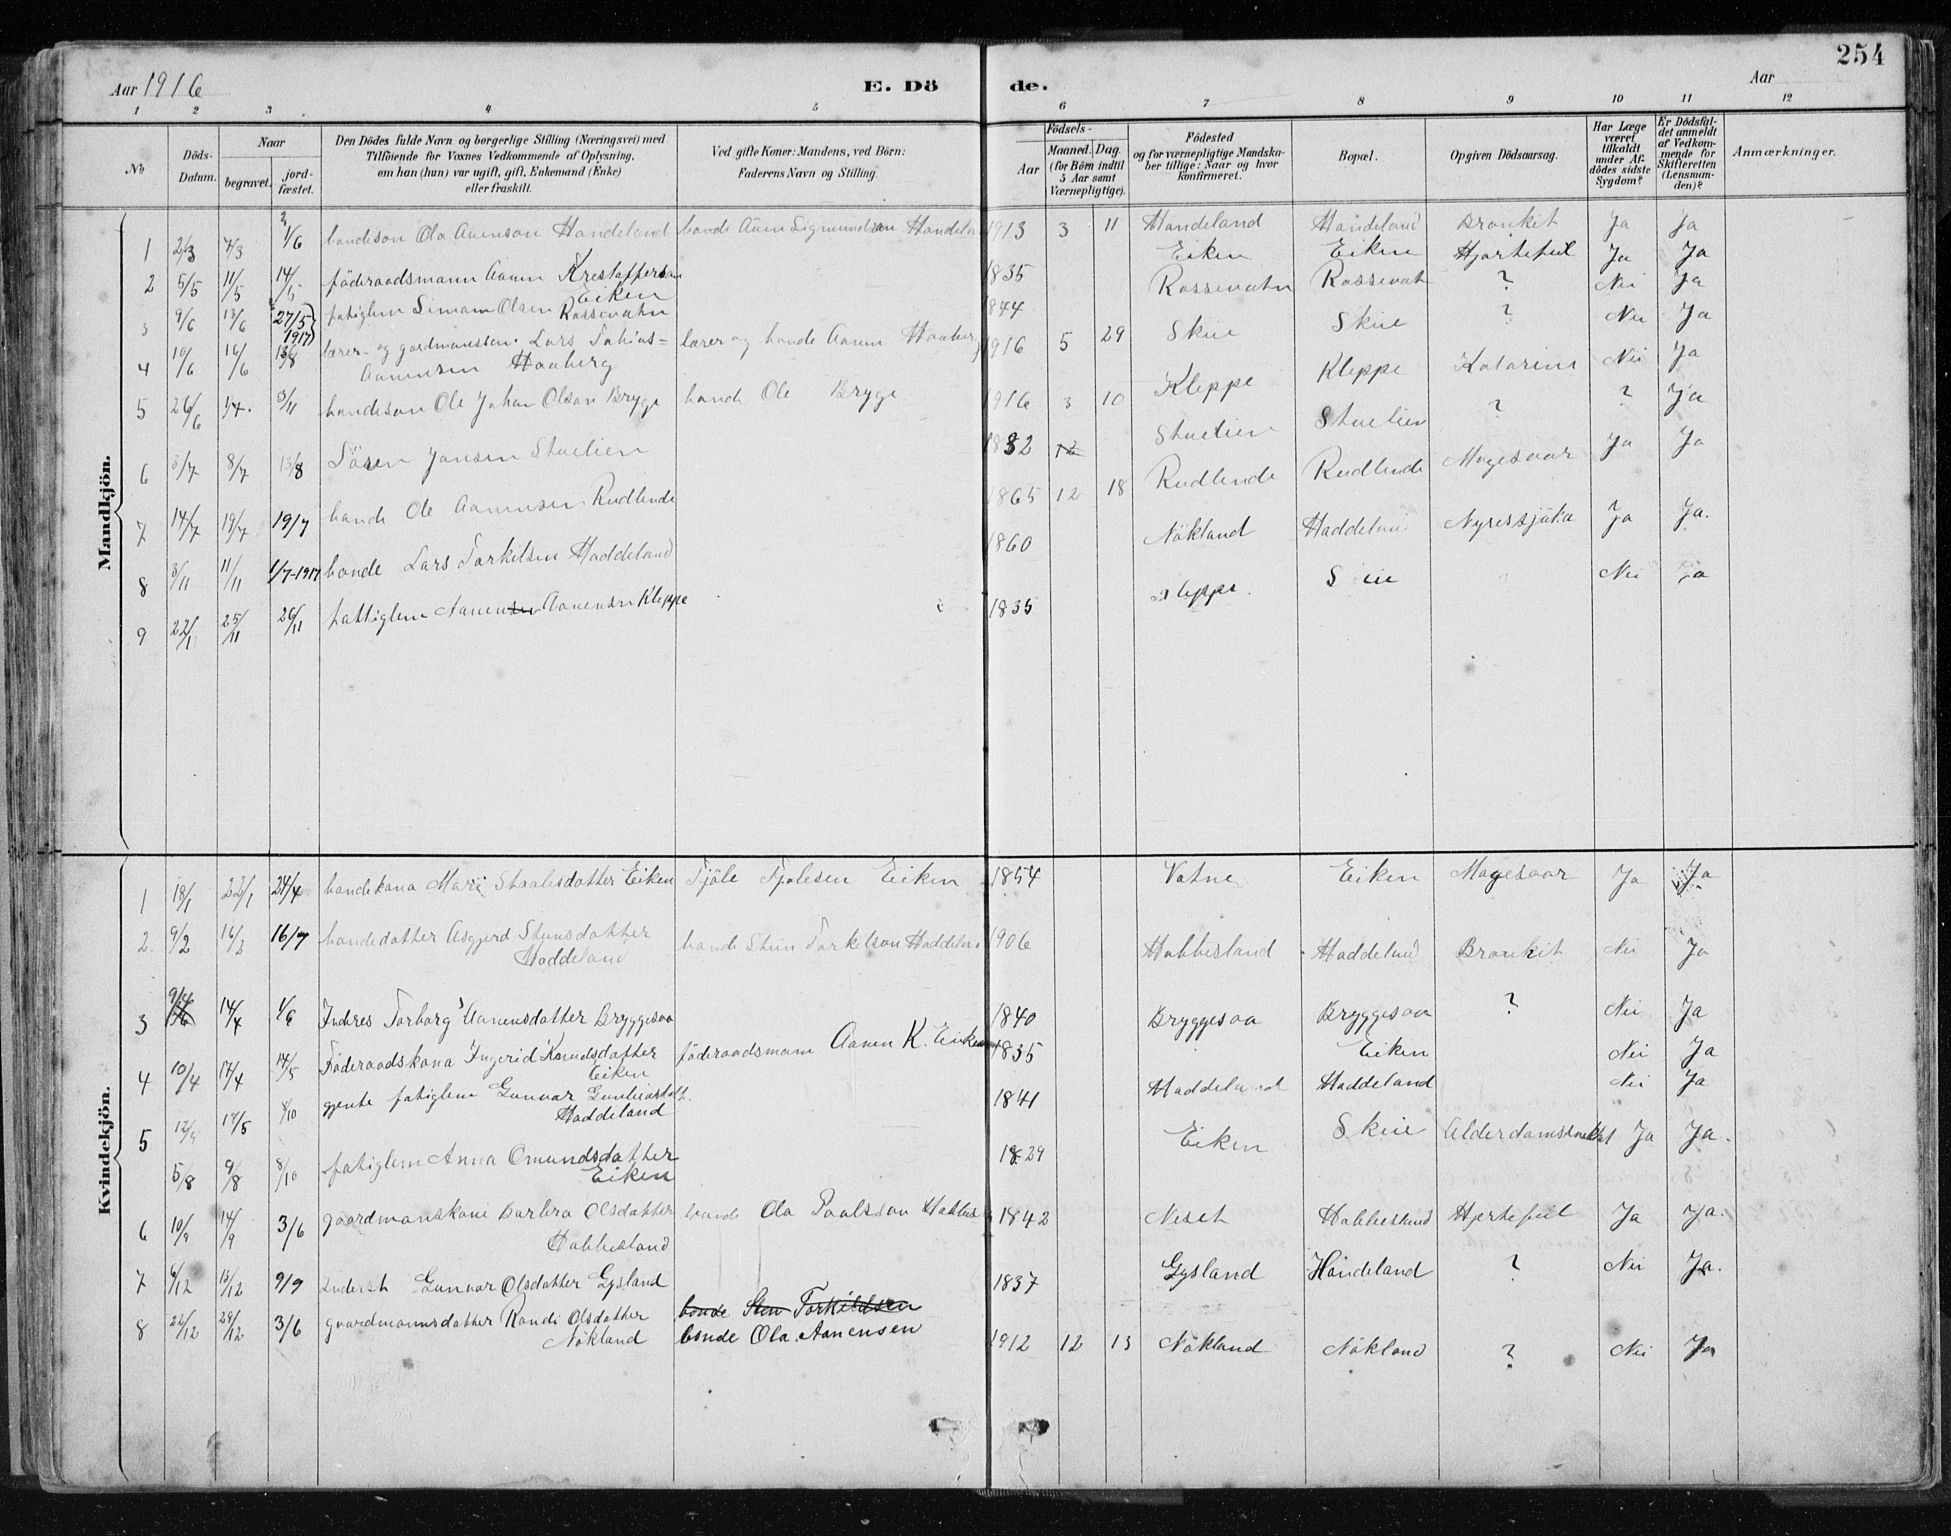 254
Aar 1916 E. Dö de. Aar
1 2 3 4 5 6 7 8 9 10 11 12
No
Döds-Datum.
Naar
begravet.
jord-fæstet.
Den Dödes fulde Navn og borgerlige Stilling (Næringsvei) med
Tilföiende for Voxnes Vedkommende af Oplysning,
om han (hun) var ugift, gift, Enkemand (Enke)
eller fraskilt.
Ved gifte Koner: Mandens, ved Börn:
Faderens Navn og Stilling.
Födsels-
Aar
Maaned. Dag.
(for Börn indtil
5 Aar samt
Værnepligtige).
Födested
og for værnepligtige Mandska-
ber tillige: Naar og hvor
konfirmeret.
Bopæl.
Opgiven Dödsaarsag.
Har Læge
været
tilkaldt
under Af-
dödes sidste
Sygdom?
Er Dödsfal-
det anmeldt
af Vedkom-
mende for
Skifteretten
(Lensman-
den)?
Anmærkninger.
Mandkjön.
1 2/3 7/3 1/6 bondeson Ola Aanenson Handeland bonde Aanen Sigmundson Handeln 1913 3 11 Handeland Handeland Bronkit Ja Ja
2 5/5 11/5 14/5 föderaadsmann Aanen Krestoffersen Eiken 1835 Eiken Eiken Hjartefeil Ja Ja
3 9/6 13/6 27/5 1917 fatiglem Simam Olsen Rossevatn 1844 Rossevatn Rossevatn ? Nei Ja
4 10/6 16/6 13/8 lærer- og gardmannssøn. Lars Tobias=
Aanensen Haaberg lærer og bonde Aanen Haaberg 1916 5 29 Skeie Skeie ? Nei Ja
5 26/6 1/7. 3/11 bondeson Ole Johan Olson Bryge bonde Ole Bryge 1916 3 10 Kleppe Kleppe Katarins Nei Ja
6 3/7 8/7 13/8 Sören Jansen Stuelien 1832 12 Stuelien Stuelien ? ? Ja
7 14/7 19/7 19/7 bonde Ole Aanensen Rudlende 1865 12 18 Rudlende Rudlende Magesaar Ja Ja
8 3/11 11/11 1/7-1917 bonde Lars Torkilsen Haddeland 1860 Nökland Haddeland Nyressjuka Ja Ja.
9 25/11 26/11 fattiglem Aanensen Aanensen Kleppe 1835 Kleppe. Skeie Nei Ja
Kvindekjön.
1 18/1 22/1 24/4 bondekona Mari Staalesdatter Eiken Tjöle Tjølesen Eiken 1854 Vatne Eiken Magesaar Ja Ja
2. 9/2 16/2 16/7 bondedatter Asgjerd Steinsdatter
Haddeland bonde Stein Torkelson Haddeln 1906 Habbesland Haddeland Bronkit Nei Ja
3 9/4 14/4 1/6 Inderes Torborg Aanensdatter Bryggesaa 1840 Bryggesaa Bryggesaa ? Nei Ja
4 10/4 17/4 14/5 Föderaadskona Ingerid Knudsdatter
Eiken föderaadsmann Aanen K. Eiken 1835 Eiken Nei Ja
5 17/5 8/10 gjente fatiglem Gunvor
Haddeland 1841 Haddeland Haddeland Nei Ja
5/8 9/8 8/10 fatiglem Anna Omundsdatter
Eiken 1829 Eiken Skeie Ja Ja.
6 10/9 14/9 3/6 gaardmanskone Barbra Olsdatter
Habbesland bonde Ola Paalsson Habbes 1842 Neset Habbesland Hjertefeil Ja Ja.
7 6/12 13/12 9/9 Inderst Gunvor Olsdatter Gysland 1837 Gysland Handeland ? Nei Ja.
8 22/12 29/12 3/6 gaardmannsdatter Randi Olsdatter
Nökland bonde Sten Torkildsen
bonde Ola Aanensen 1912 12 13 Nökland Nökland ? Nei Ja